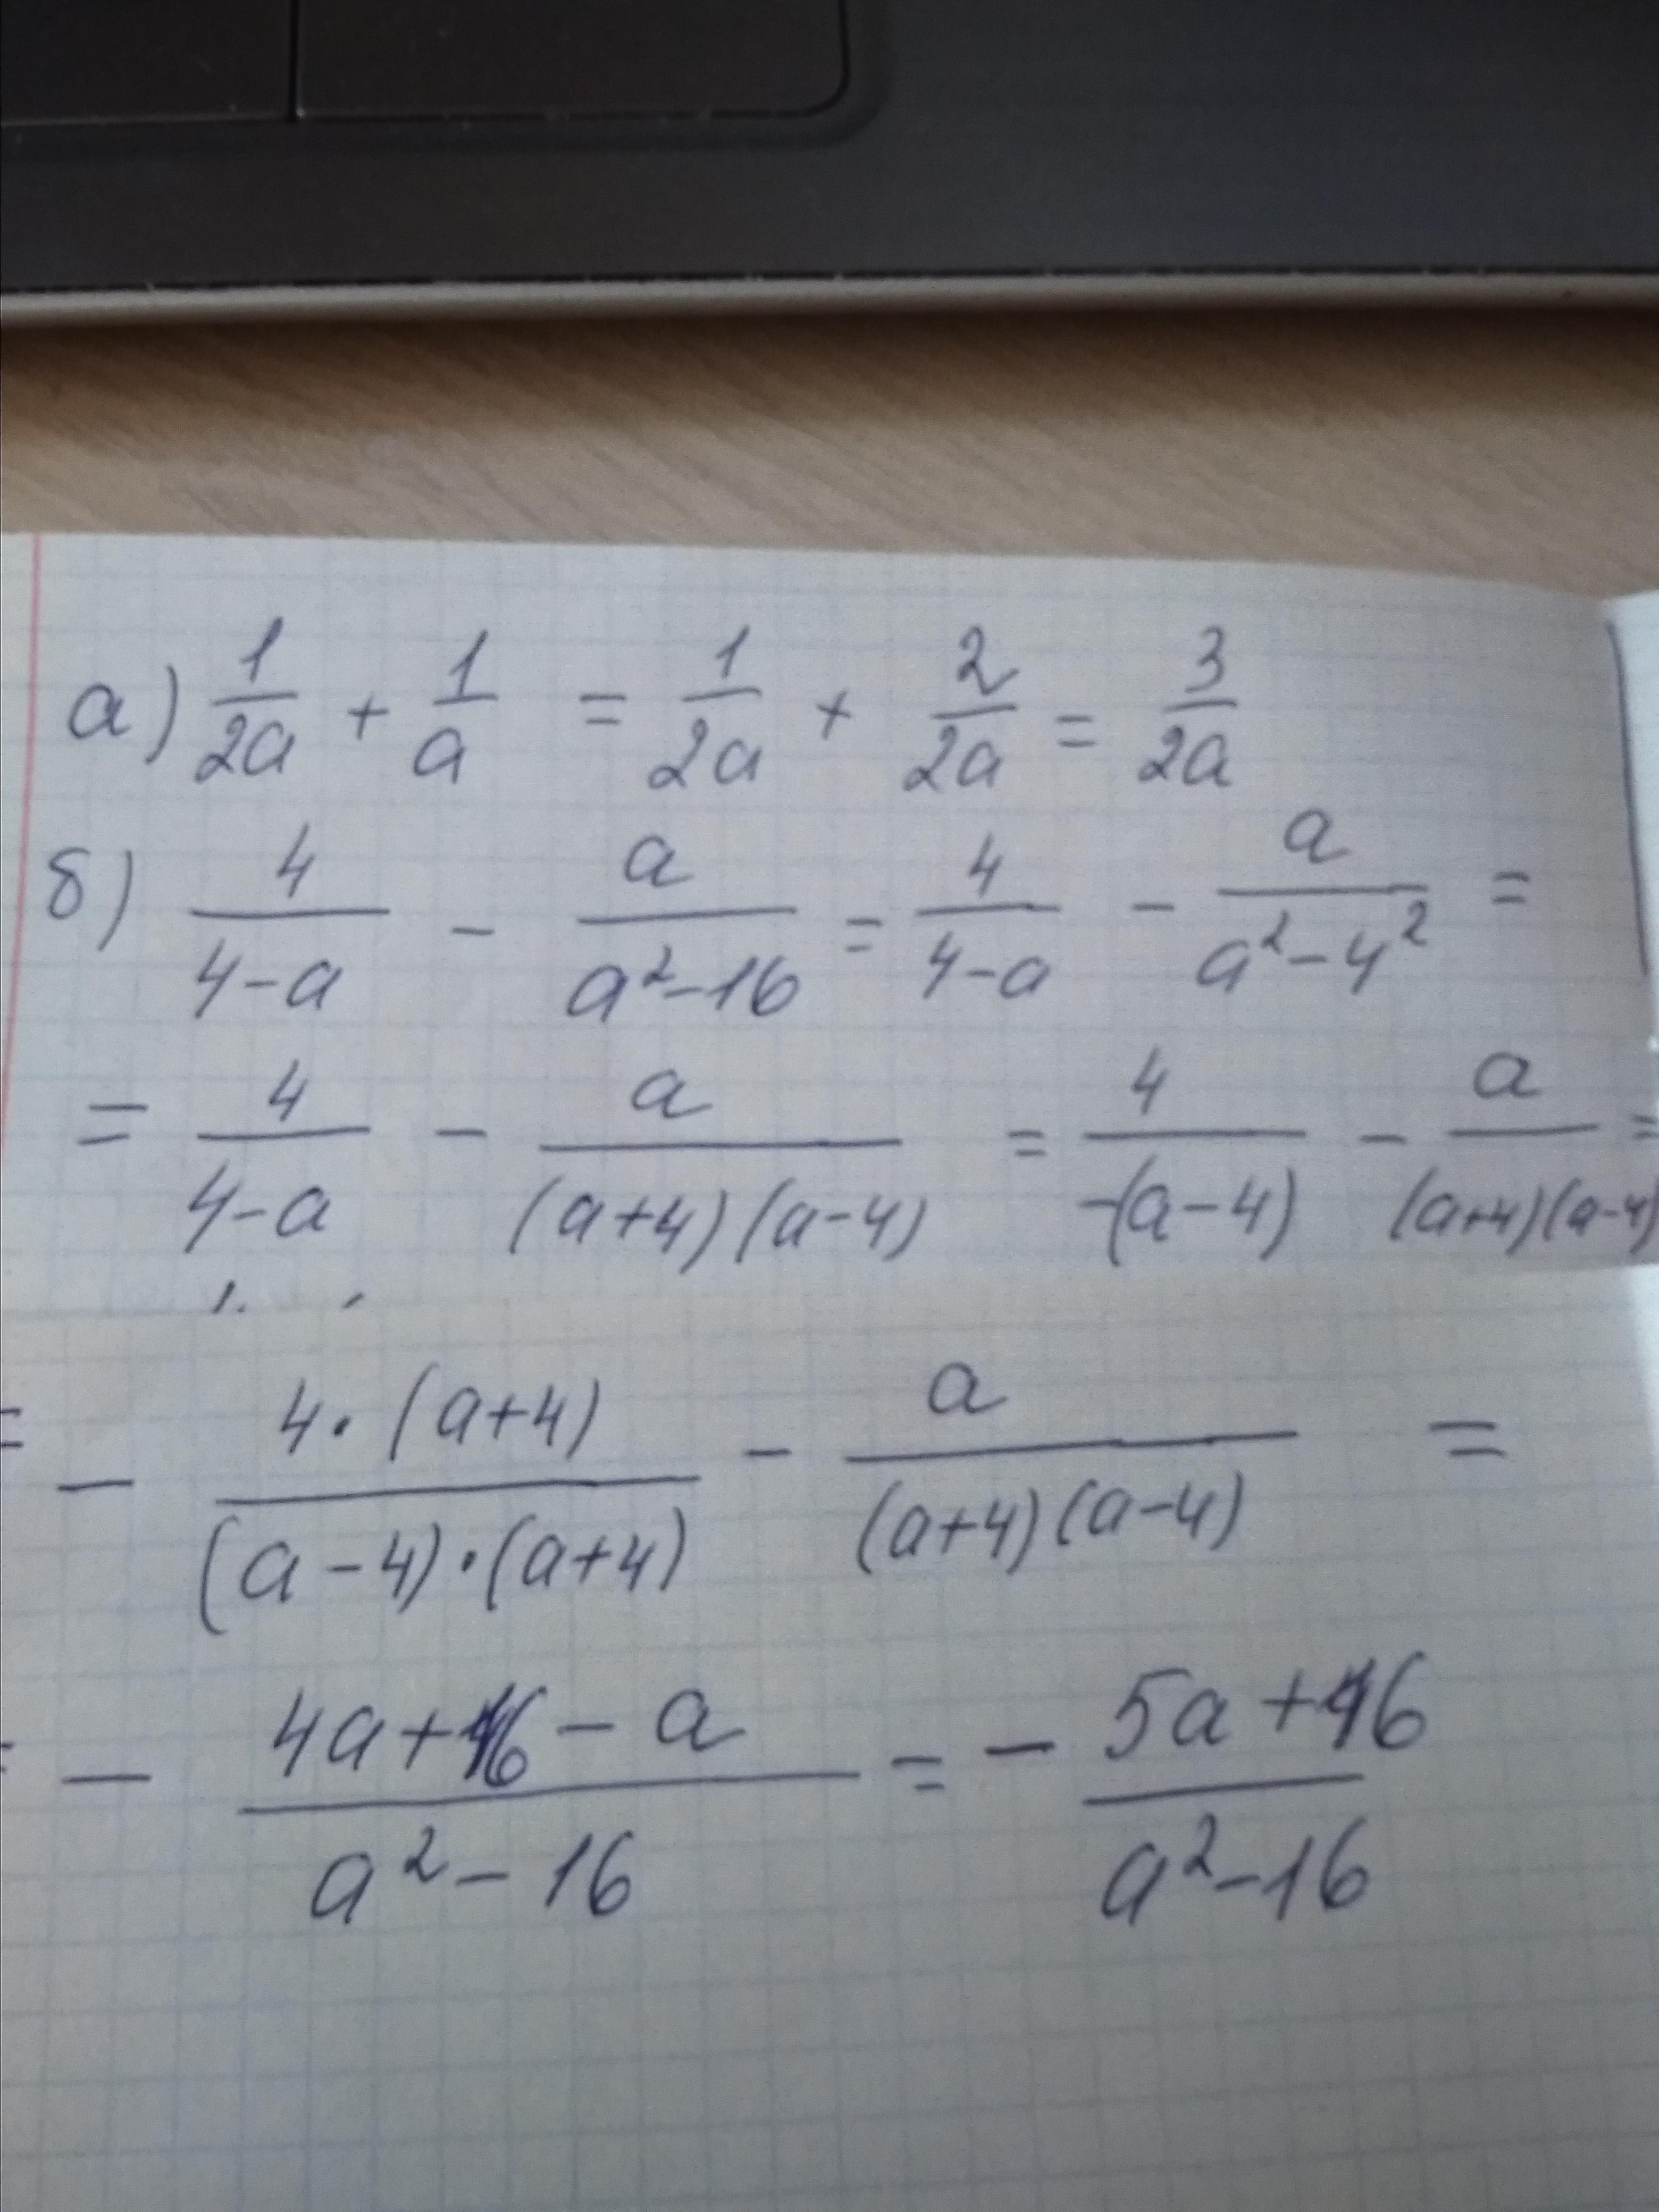 а) 1/2a + 1/a = 1/2a + 2/2a = 3/2a
б) 4/(4-a) - a/(a²-16) = 4/(4-a) - a/(a²-4²) =
= 4/(4-a) - a/((a+4)(a-4)) = 4/(-(a-4)) - a/((a+4)(a-4)) =
= - (4·(a+4))/((a-4)·(a+4)) - a/((a+4)(a-4)) =
= - (4a+16-a)/(a²-16) = - (5a+16)/(a²-16)